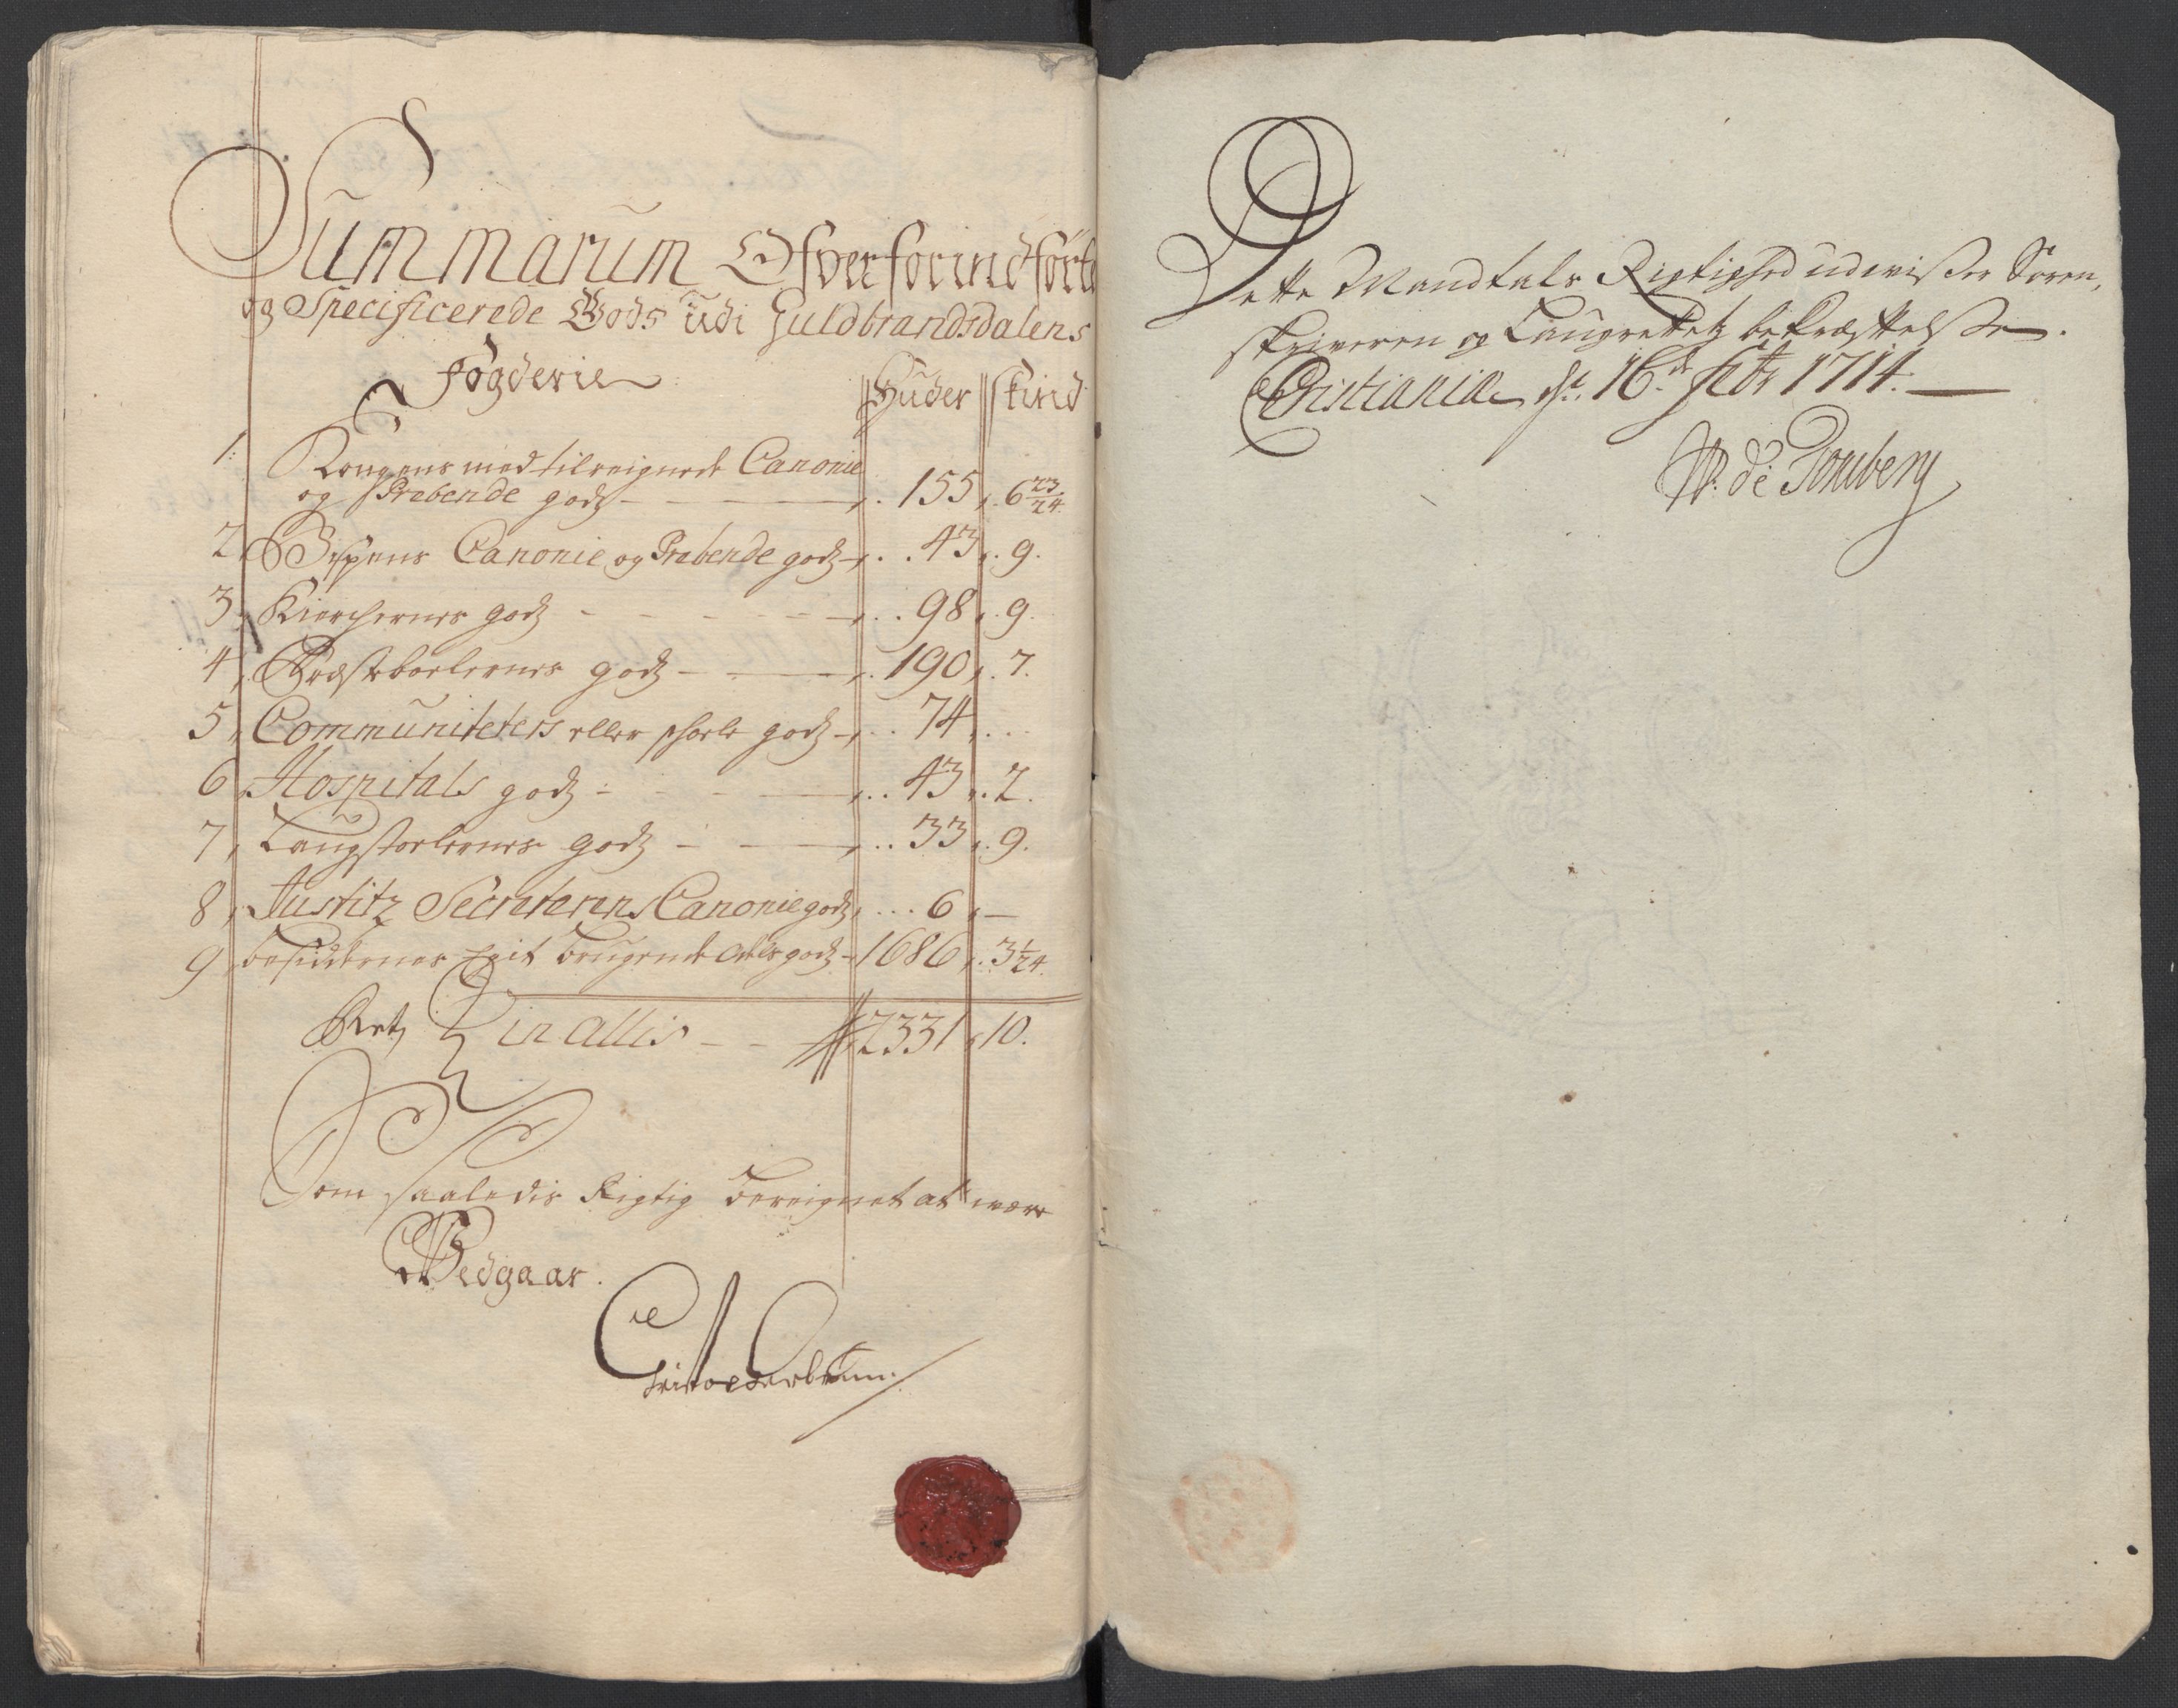 Summarum Ofverforindførte
og Specificerede Gods udi Guldbrandsdalens
Fogderie
Huder Skind
1. Kongens med tilreignede Canonie
og Præbende gods - 155 . 6 23/24
2. Bispens Canonie og Præbende gods - 43 . 9.
3. Kierchernes gods - 98 . 9.
4. Præsteboelernes gods - 190 . 7.
5. Communitetets eller schoele gods - 74 . . .
6. Hospitals gods - 43 . 2.
7. Laugstoelernes gods - 33 . 9.
8. Justitz Secreterens Canonie gods . . . 6 . —
9. Besiddernes Egit brugende odels gods - 1686 . 3 1/24.
in allis - - 2331 . 10.
Som saaledis Rigtig bereignet at være
Vedgaar.
Dette Mandtals Rigtighed udvisser Soren,
skriveren og Laugrettetz bekræfftelsse.
Christiania dt. 16de febr 1714. —
W. de Tonsberg